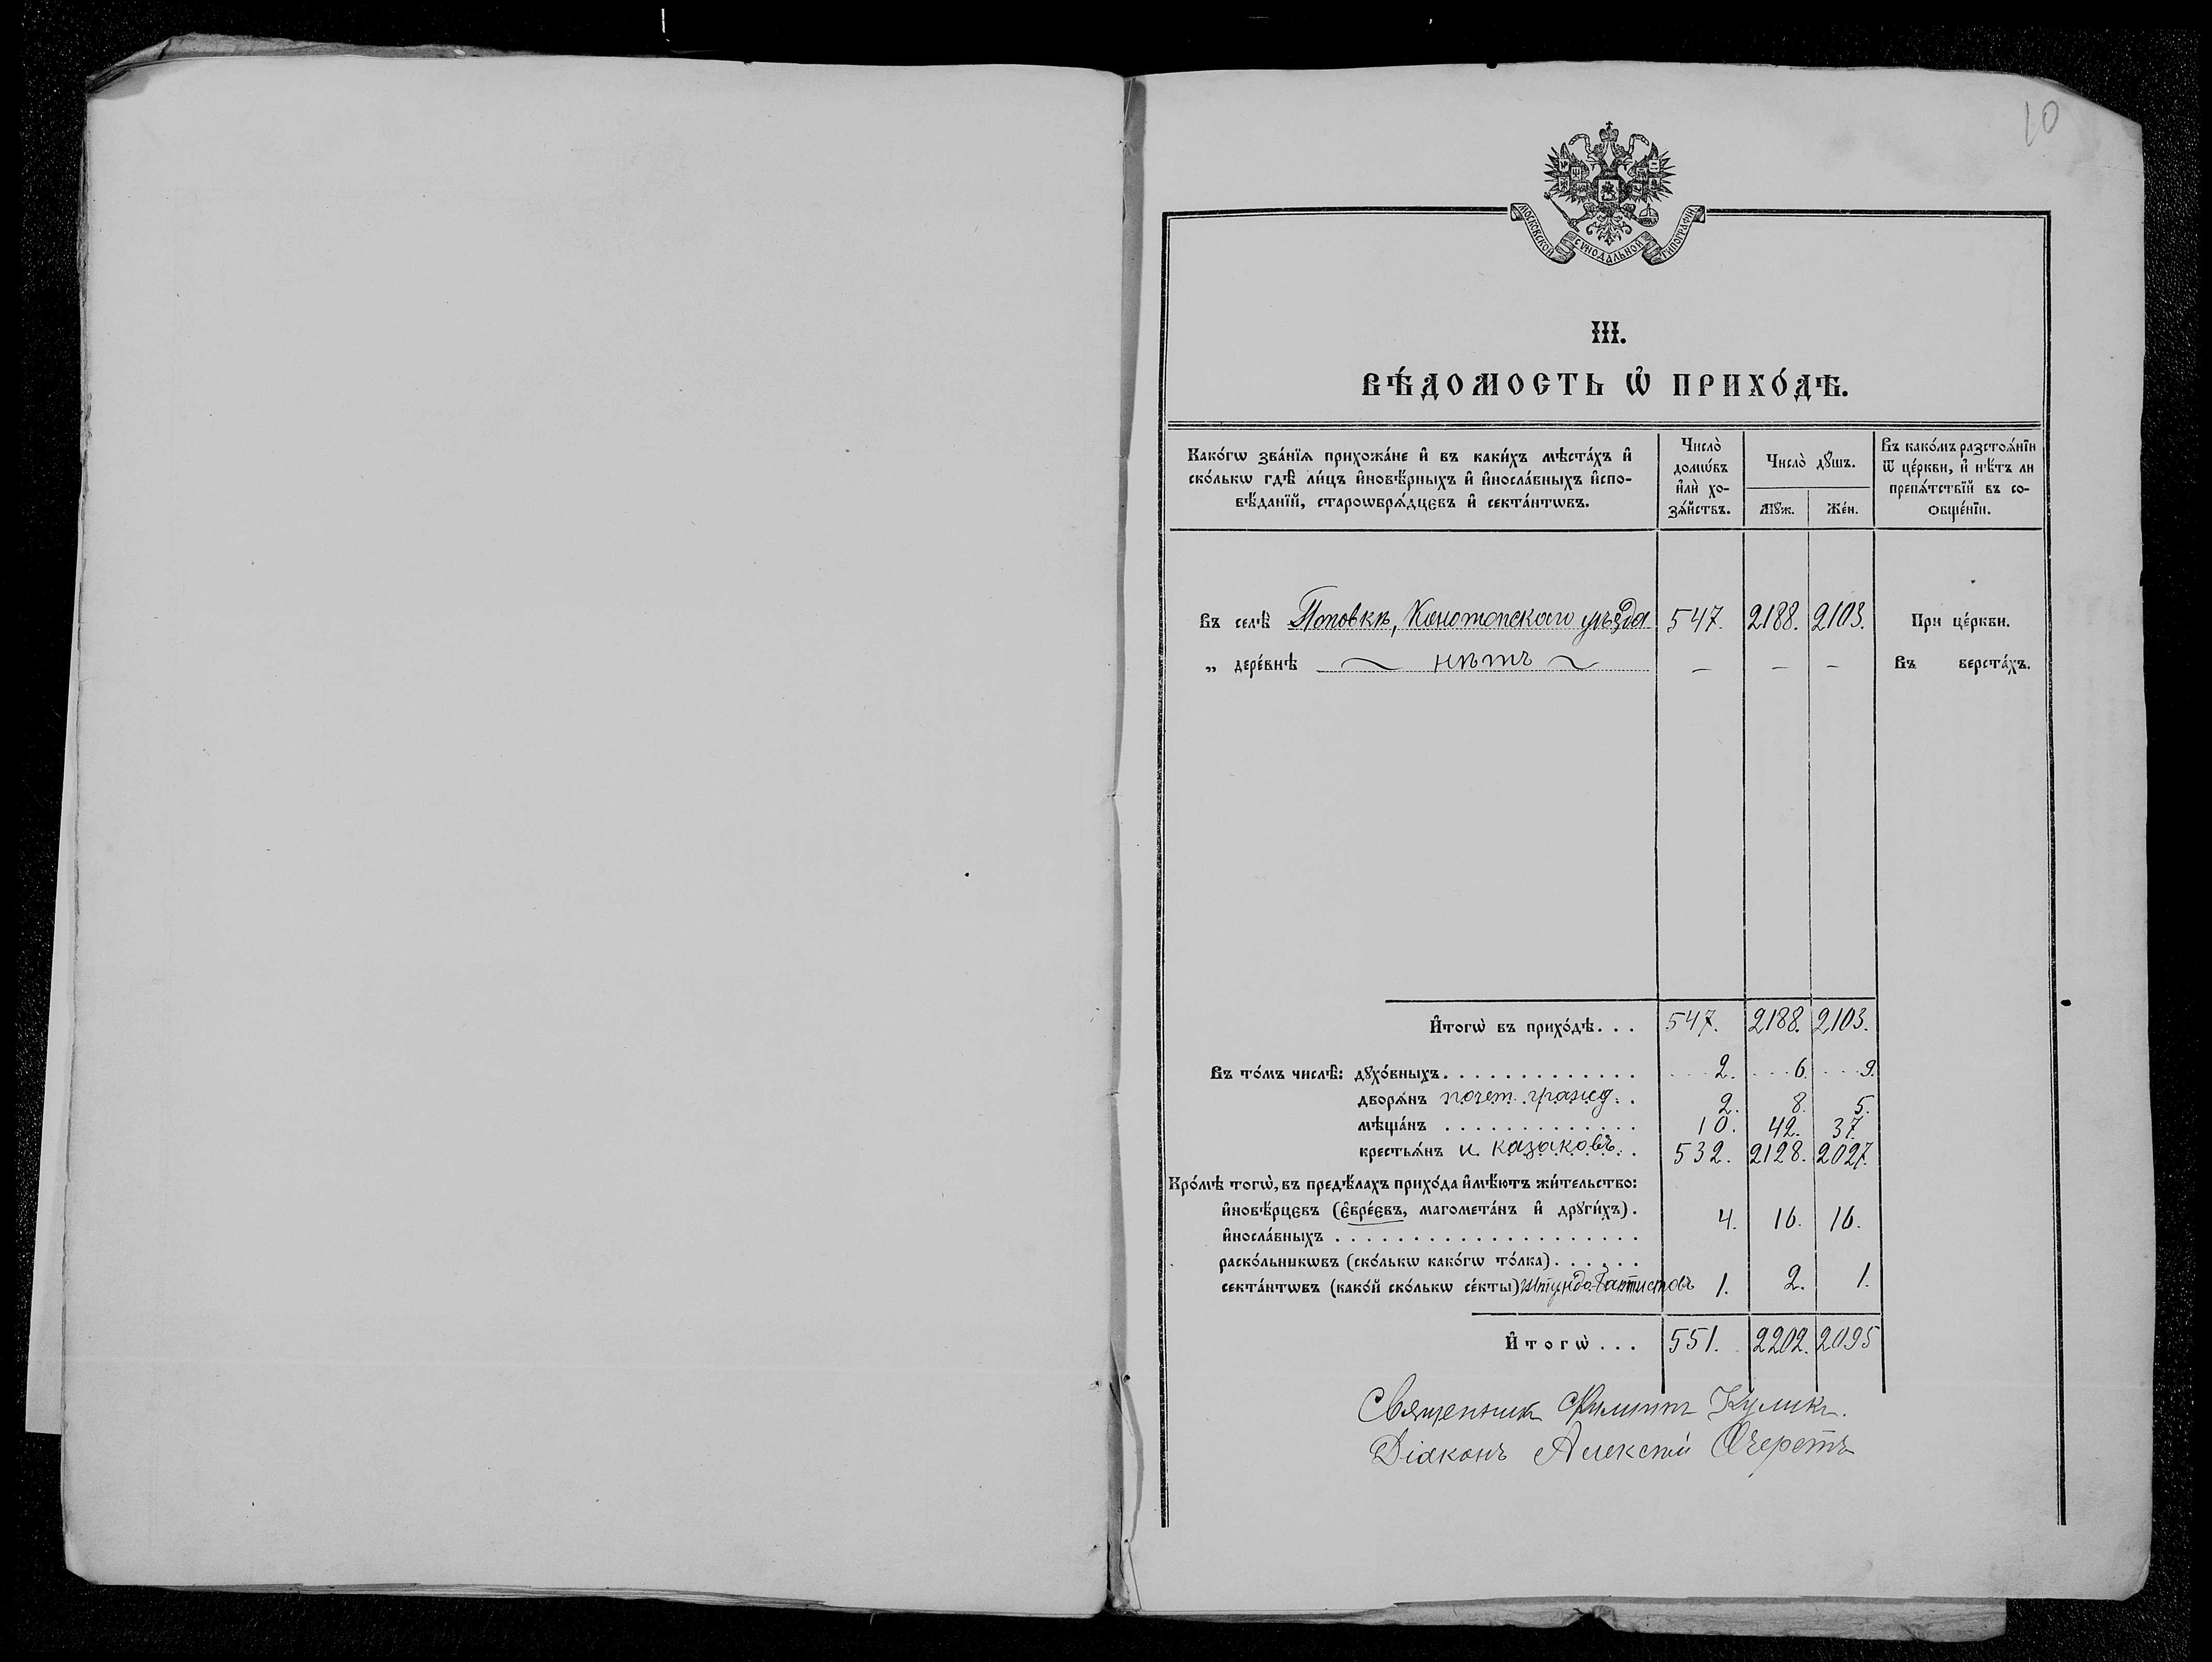 10
МОСКОВСКОЙ СѴНОДАЛЬНОЙ ТИПОГРАФІИ
III.
ВѢ́ДОМОСТЬ Ѡ҆ ПРИХО́ДѢ.
Како́гѡ зва́нїѧ прихожа́не и҆ въ каки́хъ мѣста́хъ и҆ ско́лькѡ гдѣ̀ ли́цъ и҆новѣ́рныхъ и҆ и҆носла́вныхъ и҆спо-
вѣ́данїй, староѡбрѧ́дцєвъ и҆ секта́нтѡвъ.
Число̀ домѡ́въ и҆лѝ хо-
зѧ́йствъ.
Число̀ дꙋ́шъ.
Мꙋ́ж. Же́н.
Въ како́мъ разстоѧ́нїи ѿ це́ркви, и҆ нѣ́тъ ли препѧ́тствїй въ со-
ѻбще́нїи.
Въ селѣ̀ Поповкѣ, Конотопского уѣзда 547. 2188. 2103. При це́ркви.
„ дере́внѣ ~ нѣтъ ~ — — — Въ верста́хъ.
И҆тогѡ̀ въ прихо́дѣ. . . 547. 2188. 2103.
Въ то́мъ числѣ̀: дꙋхо́вныхъ. . . 2. 6. 9.
дворѧ́нъ почет. гражд. . . 2. 8. 5.
мѣща́нъ . . . 10. 42. 37.
крестьѧ́нъ и казаковъ. . . 532. 2128. 2027.
Кро́мѣ тогѡ̀, въ предѣ́лахъ прихо́да и҆мѣ́ютъ жи́тельство:
и҆новѣ́рцєвъ (є҆вре́євъ, магомета́нъ и҆ дрꙋги́хъ). 4. 16. 16.
и҆носла́вныхъ . . .
раско́льникѡвъ (ско́лькѡ како́гѡ то́лка). . .
секта́нтѡвъ (како́й ско́лькѡ се́кты) Штундо-баптистовъ 1. 2. 1.
И҆тогѡ̀ . . . 551. 2202. 2095
Священникъ Филиппъ Куликъ.
Діаконъ Алексѣй Очеретъ